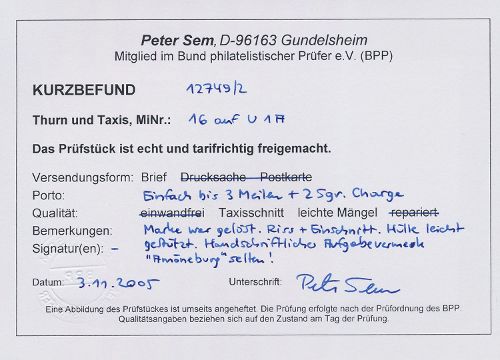 Peter Sem, D-96163 Gundelsheim
Mitglied im Bund philatelistischer Prüfer e.V. (BPP)
KURZBEFUND 12749/2
Thurn und Taxis, MiNr.: 16 auf U 1A
Das Prüfstück ist echt und tarifrichtig freigemacht.
Versendungsform: Brief Drucksache Postkarte
Porto: Einfach bis 3 Meilen + 2 Sgr. Charge
Qualität: einwandfrei Taxisschnitt leichte Mängel repariert
Bemerkungen: Marke war gelöst. Riss + Einschnitt. Hülle leicht
Signatur(en): - gestützt. Handschriftlicher Aufgabevermerk
"Amöneburg" selten!
Datum: 3.11.2005 Unterschrift: Peter Sem
Eine Abbildung des Prüfstückes ist umseits angeheftet. Die Prüfung erfolgte nach der Prüfordnung des BPP.
Qualitätsangaben beziehen sich auf den Zustand am Tag der Prüfung.